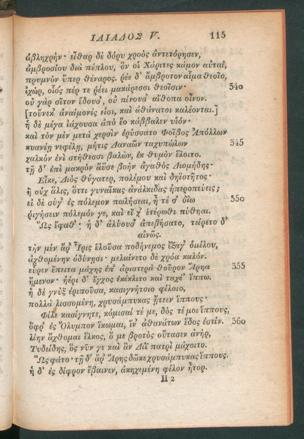 ΙΛΙΑΔΟΣ V. 115
ἀβληχρήν· εἶθαρ δὲ δόρυ χροὸς ἀντετόρησεν,
ἀμβροσίου διὰ πέπλου, ὅν οἱ Χάριτες κάμον αὐταὶ,
πρυμνὸν ὕπερ θέναρος. ῥέε δ' ἄμβροτον αἷμα θεοῖο,
ἰχὼρ, οἷός πέρ τε ῥέει μακάρεσσι θεοῖσιν· 340
οὐ γὰρ σῖτον ἔδουσ', οὐ πίνουσ' αἴθοπα οἶνον.
[τοὔνεκ' ἀναίμονές εἰσι, καὶ ἀθάνατοι καλέονται.]
ἡ δὲ μέγα ἰάχουσα ἀπὸ ἕο κάββαλεν υἱόν·
καὶ τὸν μὲν μετὰ χερσὶν ἐρύσσατο Φοῖβος Ἀπόλλων
κυανέῃ νεφέλῃ, μήτις Δαναῶν ταχυπώλων 345
χαλκὸν ἐνὶ στήθεσσι βαλὼν, ἐκ θυμὸν ἕλοιτο.
τῇ δ' ἐπὶ μακρὸν ἄϋσε βοὴν ἀγαθὸς Διομήδης·
Εἶκε, Διὸς θύγατερ, πολέμου καὶ δηϊοτῆτος·
ἦ οὐχ ἅλις, ὅττι γυναῖκας ἀνάλκιδας ἠπεροπεύεις;
εἰ δὲ σύγ' ἐς πόλεμον πωλήσεαι, ἦ τέ σ' ὀΐω 350
ῥιγήσειν πόλεμόν γε, καὶ εἴ χ' ἑτέρωθι πύθηαι.
Ὣς ἔφαθ'· ἡ δ' ἀλύουσ' ἀπεβήσατο, τείρετο δ'
αἰνῶς.
τὴν μὲν ἄρ' Ἶρις ἑλοῦσα ποδήνεμος ἔξαγ' ὁμίλου,
ἀχθομένην ὀδύνῃσι· μελαίνετο δὲ χρόα καλόν.
εὗρεν ἔπειτα μάχης ἐπ' ἀριστερὰ θοῦρον Ἄρηα 355
ἥμενον· ἠέρι δ' ἔγχος ἐκέκλιτο καὶ ταχέ' ἵππω.
ἡ δὲ γνὺξ ἐριποῦσα, κασιγνήτοιο φίλοιο,
πολλὰ λισσομένη, χρυσάμπυκας ᾔτεεν ἵππους·
Φίλε κασίγνητε, κόμισαί τέ με, δὸς τέ μοι ἵππους,
ὄφρ' ἐς Ὄλυμπον ἵκωμαι, ἵν' ἀθανάτων ἕδος ἐστίν. 360
λίην ἄχθομαι ἕλκος, ὅ με βροτὸς οὔτασεν ἀνὴρ,
Τυδείδης, ὃς νῦν γε καὶ ἂν Διῒ πατρὶ μάχοιτο.
Ὣς φάτο· τῇ δ' ἄρ' Ἄρης δῶκε χρυσάμπυκας ἵππους.
ἡ δ' ἐς δίφρον ἔβαινεν, ἀκηχεμένη φίλον ἦτορ.
H 2